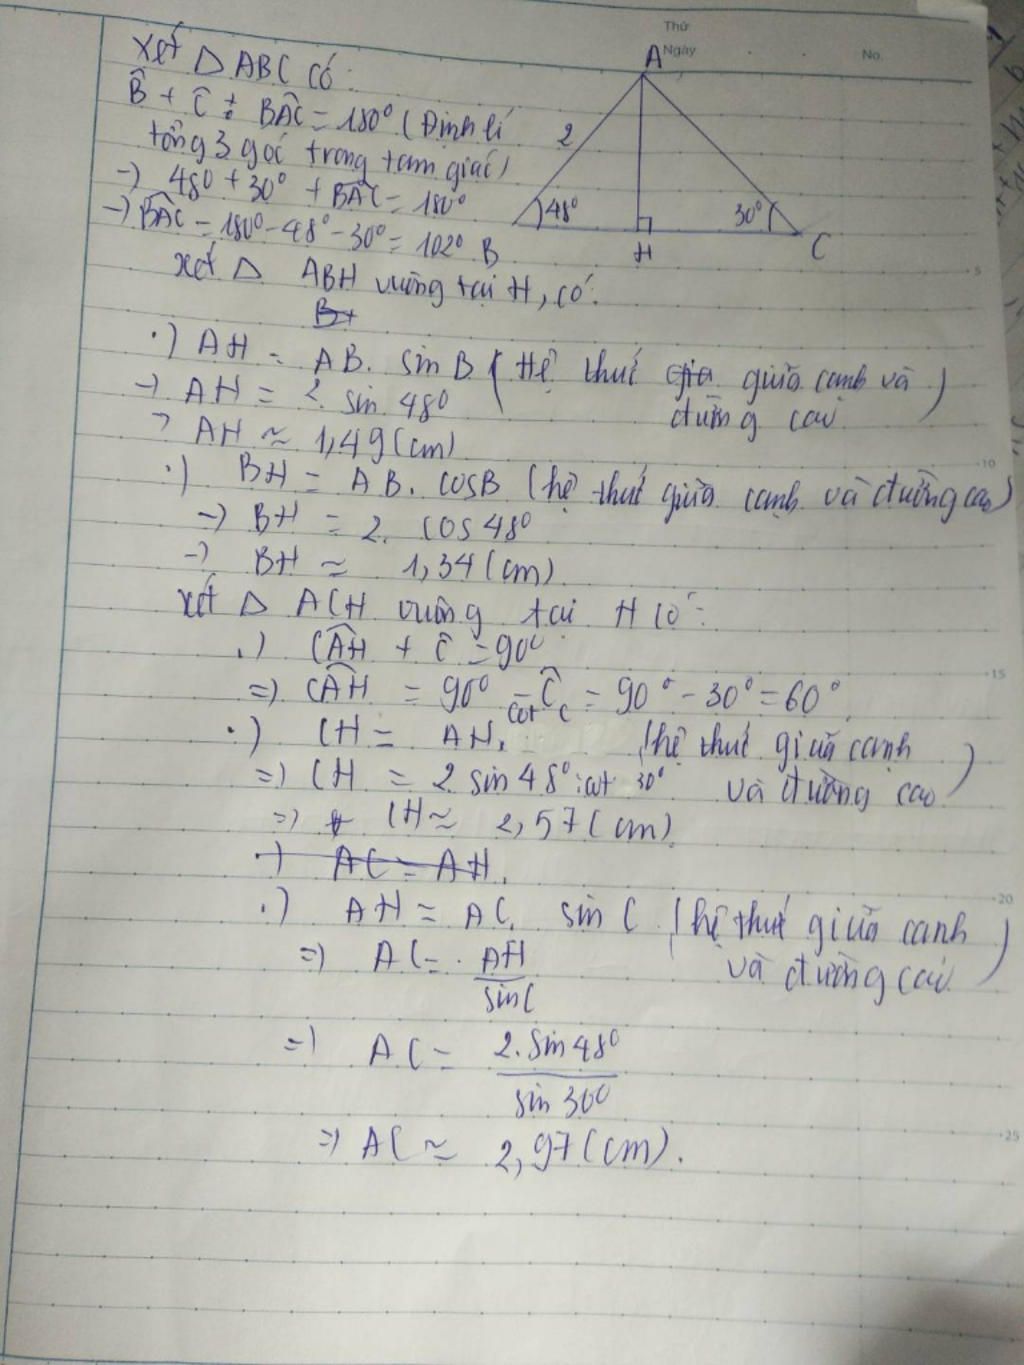 Thứ
Ngày
No.
Xét △ ABC có:
B̂ + Ĉ + BAC = 180° (Định lí
tổng 3 góc trong tam giác)
→ 48° + 30° + BAC = 180°
→ BAC = 180° - 48° - 30° = 102°
A
2
48°
30°
B
H
C
xét △ ABH vuông tại H, có:
B+
·) AH = AB. sin B (Hệ thức giữa cạnh và
đường cao)
→ AH = 2. sin 48°
→ AH ≈ 1,49(cm)
·) BH = AB. cosB (hệ thức giữa cạnh và đường cao)
→ BH = 2. cos 48°
→ BH ≈ 1,34(cm)
xét △ ACH vuông tại H có:
·) CAH + Ĉ = 90°
=) CAH = 90° - Ĉ = 90° - 30° = 60°
·) CH = AH. cot C (hệ thức giữa cạnh
và đường cao)
=) CH = 2. sin 48° . cot 30°
=) CH ≈ 2,57(cm)
·) AC = AH.
·) AH = AC. sin C (hệ thức giữa cạnh
và đường cao)
=) AC = AH
sinC
=) AC = 2. sin 48°
sin 30°
=) AC ≈ 2,97(cm).
5
10
15
20
25